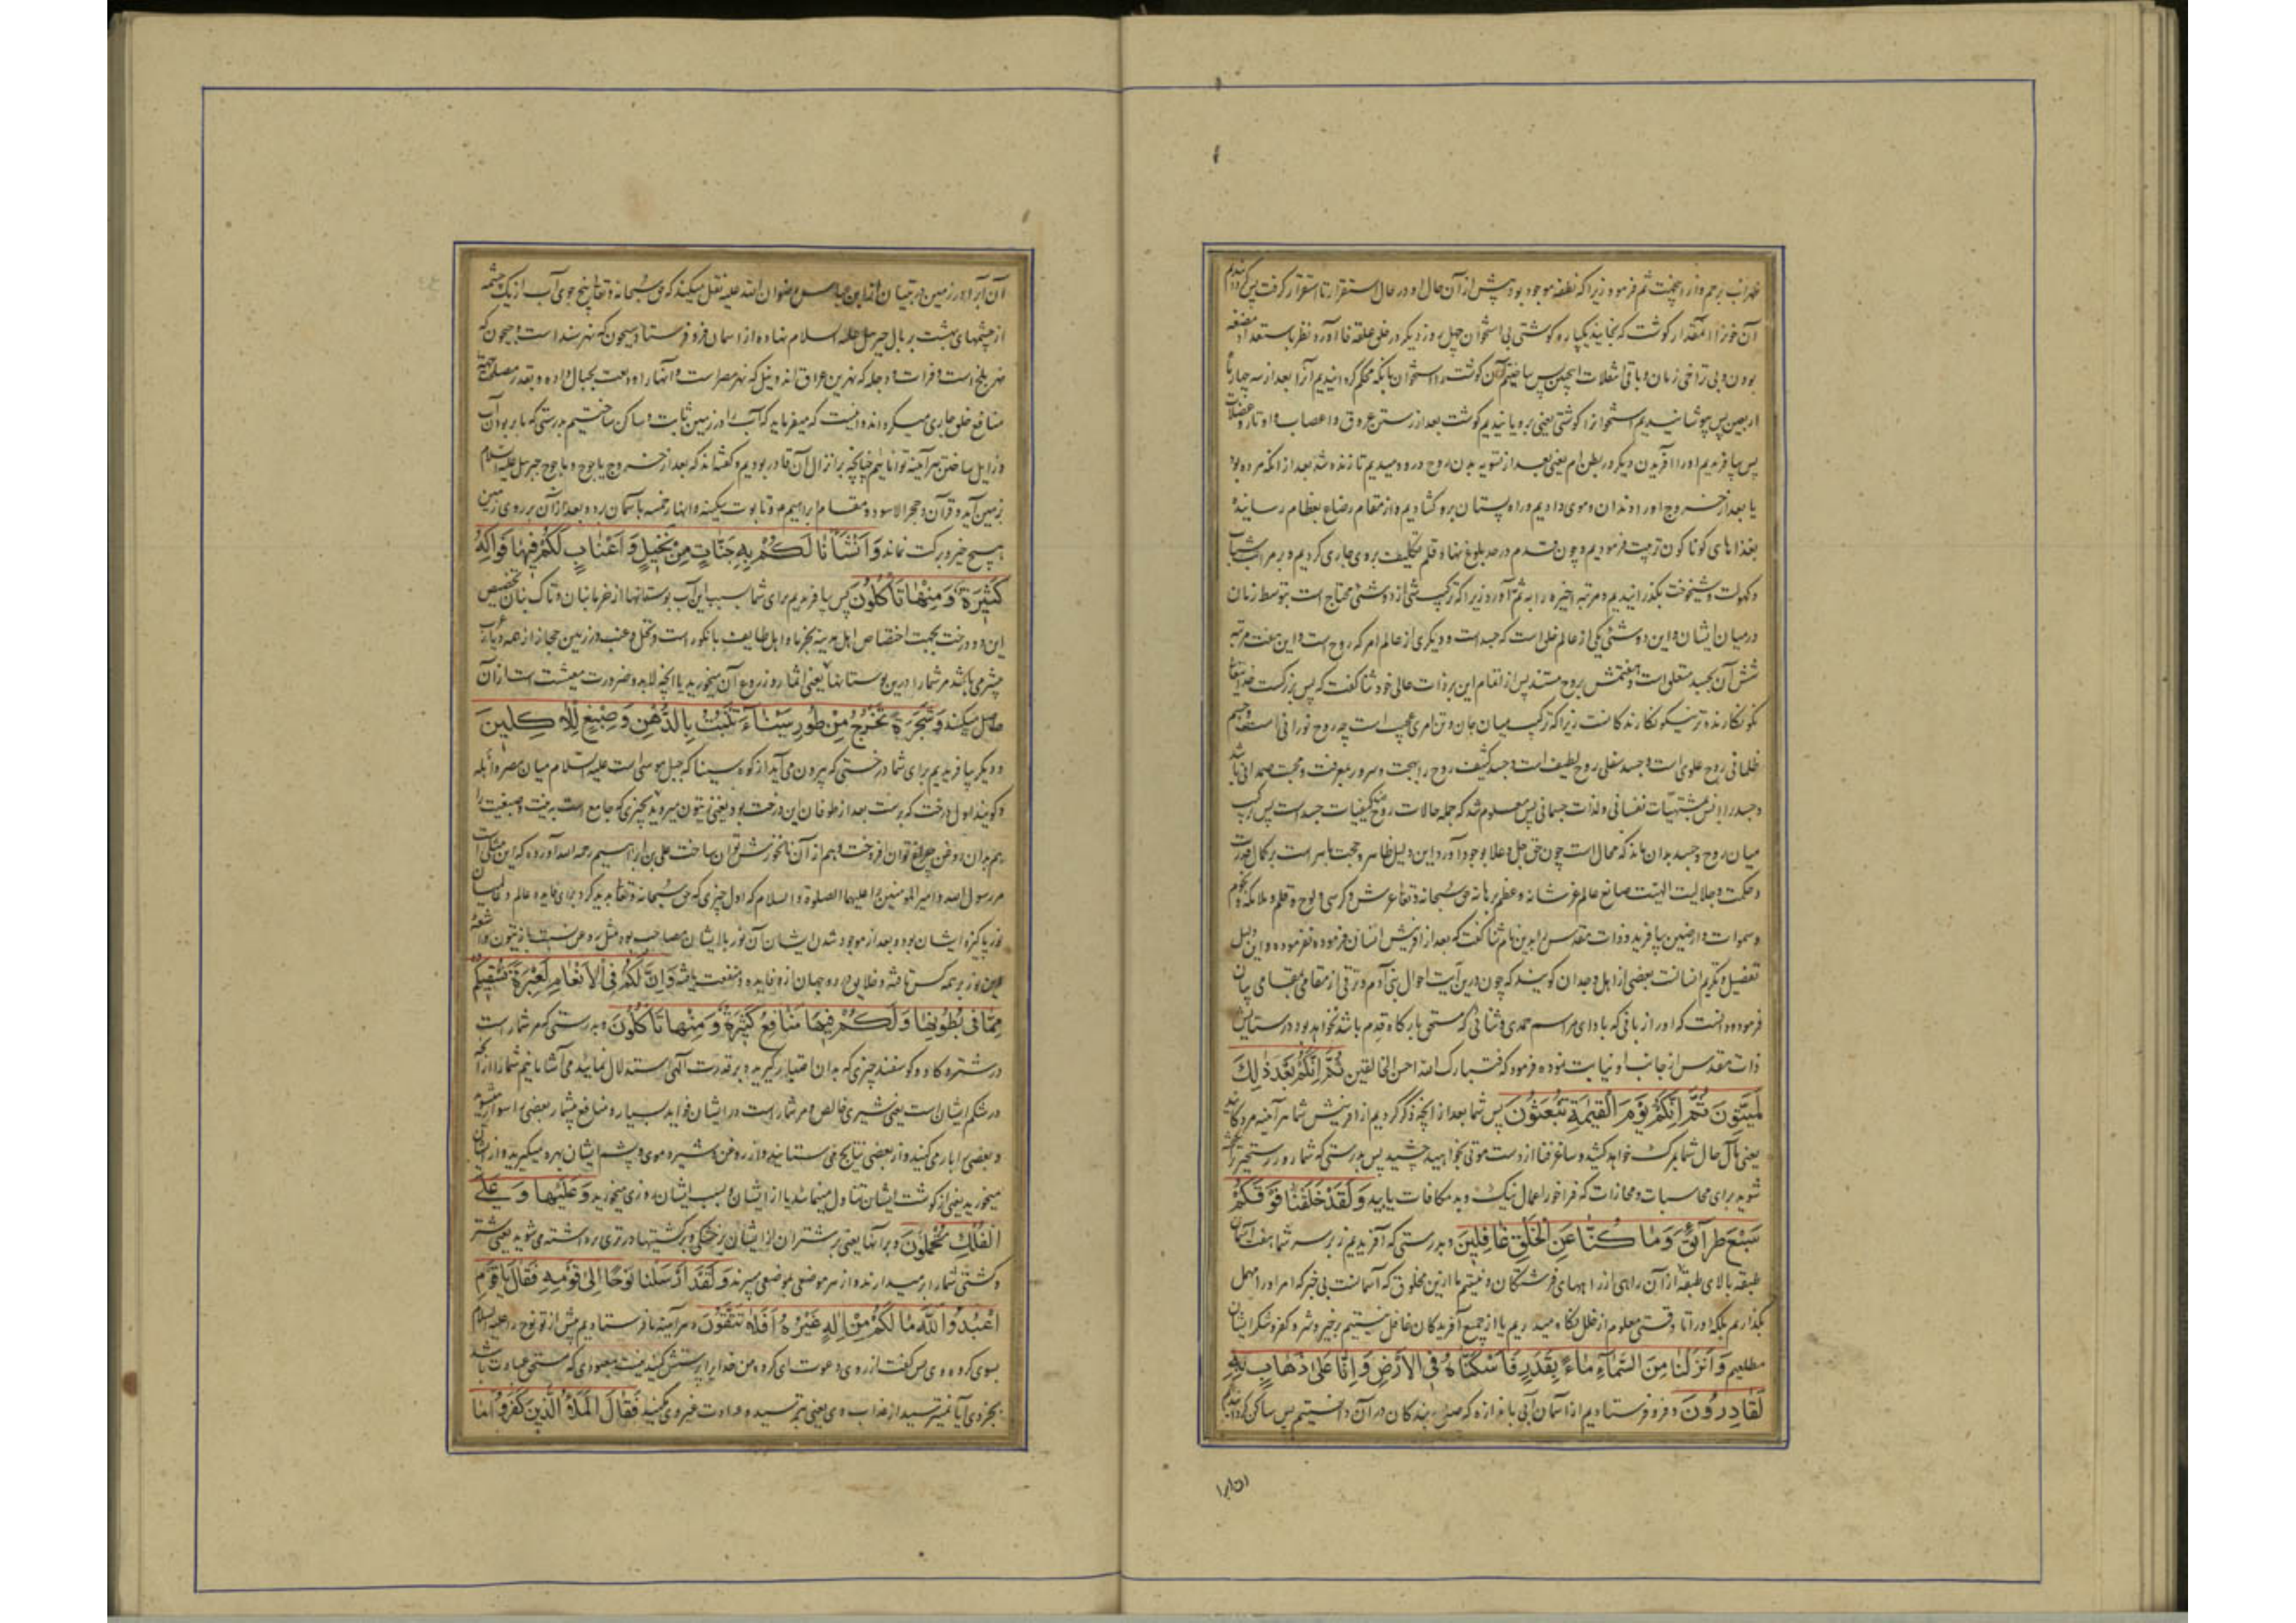 آن خون را آن مقدار گوشت که بخایند یکباره گوشتی بی استخوان چهل روز دیگر در خلق علقه فا آورد نظر باستعداد مضغه
بودن وبی تراخی زمان و باقی انتقالات همچنین پس ساختیم آن گوشت را استخوان بآنکه محکم گردانیدیم آنرا بعد از سه چهار
اربعین پس پوشانیدیم استخوانرا گوشتی یعنی برویانیدیم گوشت بعد از رستن عروق و اعصاب و اوتار و عضلات
پس بیافریدیم او را آفریدن دیگر در بطن ام یعنی بعد از تسویه بدن روح درو دمیدیم تا زنده شد بعد از آنکه مرده بود
یا بعد از خروج او را دندان و موی دادیم و راه پستان برو گشادیم و از مقام رضاع بفطام رسانیده
بغذاهای گوناگون تربیت فرمودیم و چون قدم در حد بلوغ نهاد قلم تکلیف بروی جاری کردیم و بر مراتب شباب
و کهولت و شیخوخت بگذرانیدیم و مرتبه اخیره را به ثم آورد زیرا که ترکیب شی از دو شئ محتاج است بتوسط زمان
در میان ایشان و این دو شئی یکی از عالم خلق است که جسد است و دیگری از عالم امر که روح است و این هفت مرتبه
شش آن بجسد متعلق است و هفتمش بروح مستند پس از اتمام این بر ذات عالی خود ثنا گفت که پس بزرگست خدایتعالی
نکو نگارنده تر نیکو نگارندگانست زیرا که ترکیب میان جان و تن امری عجیب است چه روح نورانی است و جسم
ظلمانی روح علوی است و جسد سفلی روح لطیف است و جسد کثیف روح را بهجت و سرور بمعرفت و محبت صمدانی باشد
و جسد را انس بمشتهیات نفسانی و لذات جسمانی پس معلوم شد که جمله حالات روح ضد کیفیات جسد است پس ترکیب
میان روح و جسد بدان ماند که محال است چون حق جل و علا بوجود آورد این دلیل ظاهر و حجت باهر است بر کمال قدرت
و حکمت و جلالیت الهیت صانع عالم عز شانه و عظم برهانه حق سبحانه و تعالی عرش و کرسی و لوح و قلم و ملائکه و نجوم
و سموات و ارضین بیافرید و ذات مقدس را بدین نام ثنا نگفت که بعد از آفرینش انسان فرمود و این دلیل
تفضیل و تکریم انسانست بعضی از اهل وجدان گویند که چون درین آیت احوال بنی آدم و ترقی از مقامی بمقامی بیان
فرموده دانست که او را زبانی که بادای مراسم حمدی و ثنائی که مستحق بارگاه قدم باشد نخواهد بود در ستایش
ذات مقدس از جانب او نیابت نموده فرمود که فتبارک الله احسن الخالقین ثُمَّ اِنَّكُمْ بَعْدَ ذٰلِكَ
لَمَيِّتُونَ ثُمَّ اِنَّكُمْ يَوْمَ الْقِيٰمَةِ تُبْعَثُونَ پس شما بعد از آنچه ذکر کردیم از آفرینش شما هر آینه مردگانید
یعنی مآل حال شما بمرگ خواهد کشید و ساغر فنا از دست موتی بخواهید چشید پس بدرستی که شما روز رستخیز
شوید برای محاسبات و مجازات که فراخور اعمال نیک و بد مکافات یابید وَلَقَدْ خَلَقْنَا فَوْقَكُمْ
سَبْعَ طَرَآئِقَ وَمَا كُنَّا عَنِ الْخَلْقِ غَافِلِينَ و بدرستی که آفریدیم زبر سر شما هفت آسمان
طبقه بالای طبقه از آن راهی از راههای فرشتگان و نیستیم ما ازین مخلوق که آسمانست بی خبر که امر او را مهمل
بگذاریم بلکه او را تا وقتی معلوم از خلل نگاه میداریم یا از جمیع آفریدگان غافل نیستیم بر خیر و شر و کفر و شکر ایشان
مطلعیم وَاَنْزَلْنَا مِنَ السَّمَآءِ مَآءً بِقَدَرٍ فَاَسْكَنَّاهُ فِي الْاَرْضِ وَاِنَّا عَلٰى ذَهَابٍ بِهٖ
لَقَادِرُونَ و فرو فرستادیم از آسمان آبی باندازه که صلاح بندگان در آن دانستیم پس ساکن گردانیدیم
آن آبرا
آن آبرا در زمین در تبیان از ابن عباس رضوان الله علیه نقل میکند که حق سبحانه و تعالی پنج جوی آب از یک چشمه
از چشمهای بهشت بر بال جبرئیل علیه السلام نهاده از آسمان فرو فرستاد سیحون که نهر سند است و جیحون که
نهر بلخ است و فرات و دجله که نهرین عراق اند و نیل که نهر مصر است و آنها را ودیعت بجبال داده و بقدر مصلحت
منافع خلق جاری میگرداند و اینست که میفرماید که آب را در زمین ثابت و ساکن ساختیم بدرستی که ما بر بردن آب
و زایل ساختن هر آینه تواناییم چنانچه بر انزال آن قادر بودیم و گفته‌اند که بعد از خروج یاجوج و ماجوج جبرئیل علیه السلام
بزمین آید و قرآن و حجر الاسود و مقام ابراهیم و تابوت سکینه و انهار خمسه بآسمان برد و بعد از آن بر روی زمین
هیچ خیر و برکت نماند وَاَنْشَاْنَا لَكُمْ بِهٖ جَنَّاتٍ مِنْ نَخِيلٍ وَاَعْنَابٍ لَكُمْ فِيهَا فَوَاكِهُ
كَثِيرَةٌ وَمِنْهَا تَاْكُلُونَ پس بیافریدیم برای شما بسبب این آب بوستانها از خرمابنان و تاک بنان تخصیص
این دو درخت بجهت اختصاص اهل مدینه بخرما و اهل طایف بانگور است و نخل و عنب در زمین حجاز از همه دیار
بیشتر می باشد مر شما را درین بوستانها یعنی اثمار و زروع آن میخورید یا آنچه لابد و ضرورت معیشت است از آن
حاصل میکنند وَشَجَرَةً تَخْرُجُ مِنْ طُورِ سَيْنَآءَ تَنْبُتُ بِالدُّهْنِ وَصِبْغٍ لِلْاٰكِلِينَ
و دیگر بیافریدیم برای شما درختی که بیرون می آید از کوه سینا که جبل موسی است علیه السلام میان مصر و ایله
و گویند اول درخت که برست بعد از طوفان این درخت بود یعنی زیتون میروید بچیزی که جامع است دهنیت و صبغیت را
هم بدان روغن چراغ توان افروخت و هم از آن نانخورش توان ساخت علی بن ابراهیم رحمه الله آورده که این مثلی است
مر رسول الله و امیر المؤمنین را علیهما الصلوة و السلام که اول چیزی که حق سبحانه و تعالی پدید کرد برای فایده عالم و عالمیان
نور پاکیزه ایشان بود و بعد از موجود شدن ایشان آن نور با ایشان مصاحب بود مثل روغن نسبت با زیتون و اشعه
این نور بر همه کس تافته و خلایق در دو جهان ازو فایده و منفعت یافته وَاِنَّ لَكُمْ فِي الْاَنْعَامِ لَعِبْرَةً نُسْقِيكُمْ
مِمَّا فِي بُطُونِهَا وَلَكُمْ فِيهَا مَنَافِعُ كَثِيرَةٌ وَمِنْهَا تَاْكُلُونَ و بدرستی که مر شما راست
در شتر و گاو و گوسفند چیزی که بدان اعتبار گیرید و بر قدرت الهی استدلال نمایید می آشامانیم شما را از آنچه
در شکم ایشان است یعنی شیری خالص و مر شما راست در ایشان فواید بسیار و منافع بیشمار بعضی را سوار میشوید
و بعضی را بار می کنید و از بعضی نتایج می ستانید و از روغن و شیر و موی و پشم ایشان بهره میگیرید و از ایشان
میخورید یعنی از گوشت ایشان تناول مینمایید یا از ایشان و بسبب ایشان روزی میخورید وَعَلَيْهَا وَعَلَى
الْفُلْكِ تُحْمَلُونَ و بر آنها یعنی بر شتران از ایشان در خشکی و بر کشتیها در تری برداشته می شوید یعنی شتر
و کشتی شما را بر میدارند و از هر موضعی بموضعی میبرند وَلَقَدْ اَرْسَلْنَا نُوحًا اِلٰى قَوْمِهٖ فَقَالَ يَا قَوْمِ
اعْبُدُوا اللّٰهَ مَا لَكُمْ مِنْ اِلٰهٍ غَيْرُهُ اَفَلَا تَتَّقُونَ و هر آینه ما فرستادیم پیش از تو نوح را علیه السلام
بسوی گروه وی پس گفت از روی دعوت ای گروه من خدایرا پرستش کنید نیست معبودی که مستحق عبادت باشد
بجز وی آیا نمیترسید از عذاب وی یعنی بترسید و عبادت غیر وی مکنید فَقَالَ الْمَلَاُ الَّذِينَ كَفَرُوا